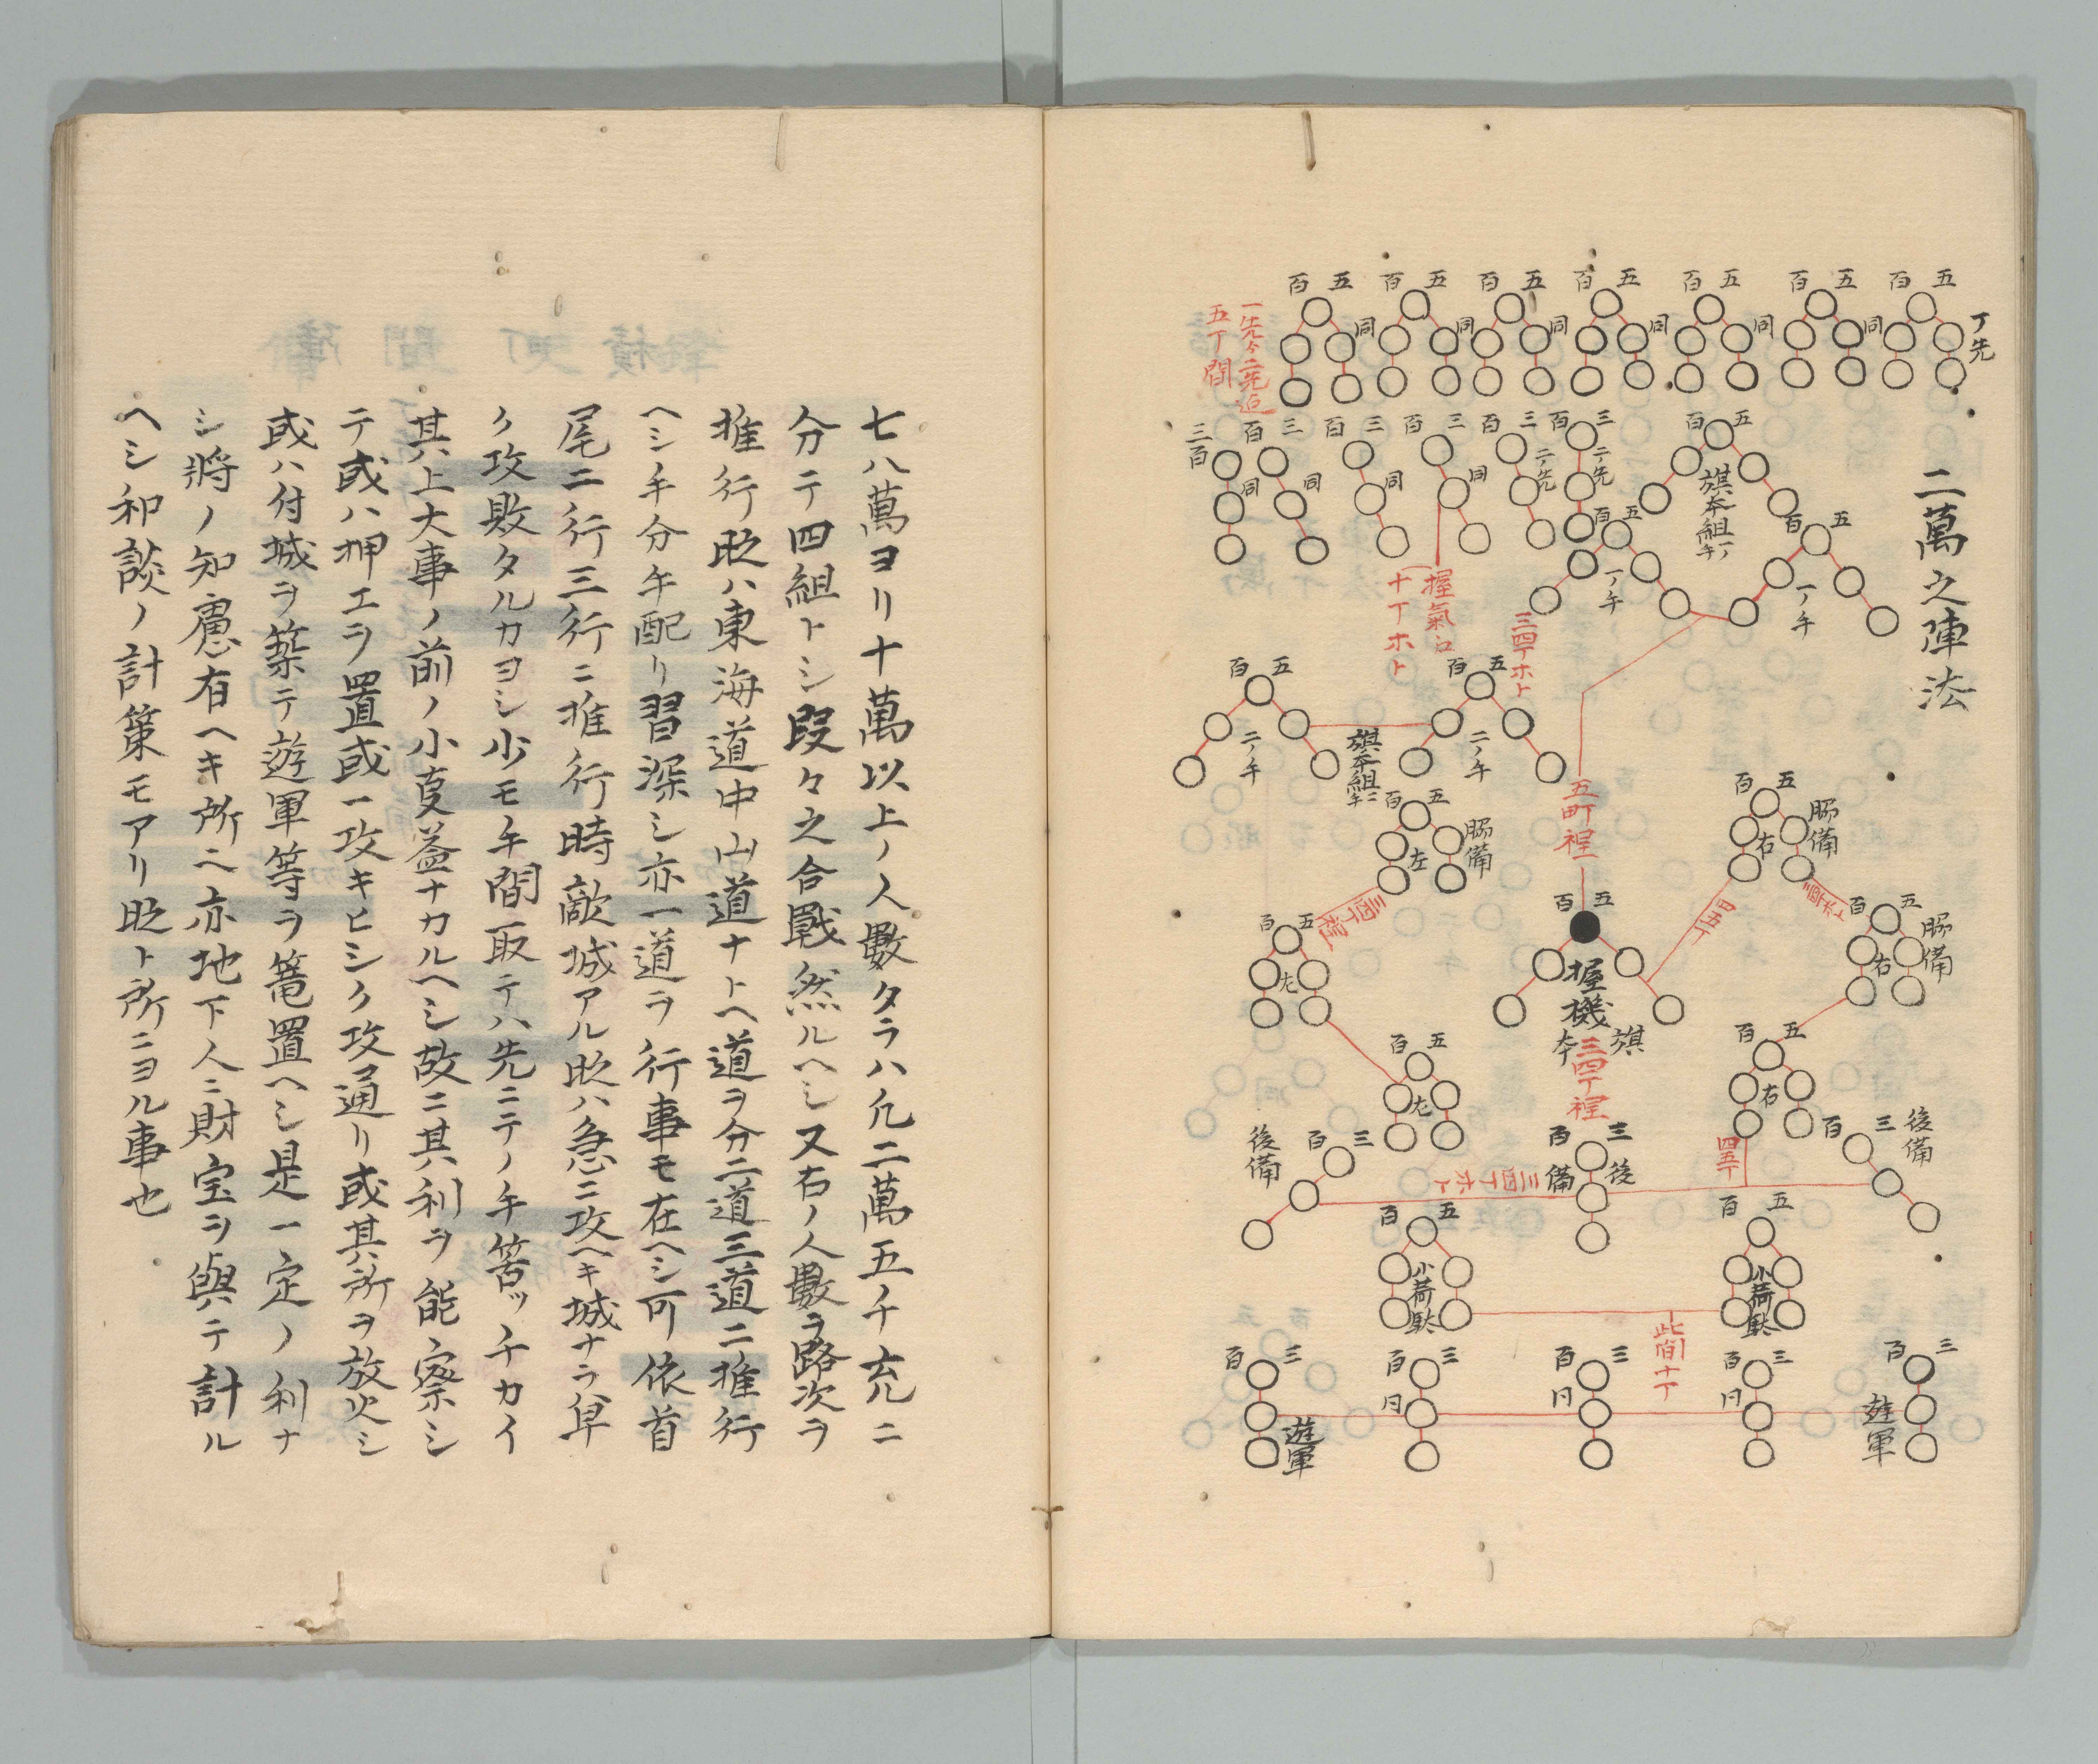 二萬之陣法
五百 五百 五百 五百 五百 五百 五百
一先 同 同 同 同 同 同
一先ゟ二先迄
五丁間
五百 三百 三百 三百 三百 三百 三百
旗本組一ノ手
二ノ先 二ノ先 同 同 同 同
五百 五百
一ノ手 一ノ手
三四丁ホト
握氣ゟ
十丁ホト
五百 五百
二ノ手 二ノ手
旗本組二ノ手
五町程
五百 五百
脇備 右 左 脇備
三四丁ホト 四五丁 三四丁程
五百 五百 五百
脇備 右 握機 左
旗本
三四丁程
五百 五百
右 左
四五丁
三百 三百 三百
後備 後備 後備
三四丁ホト
五百 五百
小荷駄 小荷駄
此間十丁
三百 三百 三百 三百 三百
遊軍 同 同 遊軍
七八萬ヨリ十萬以上ノ人數タラハ凡二萬五ノ千充ニ
分テ四組トシ段々之合戰然ルヘシ又右ノ人數ヲ路次ヲ
推行時ハ東海道中山道ナトヘ道ヲ分二道三道ニ推行
ヘシ手分手配リ習深シ亦一道ヲ行事モ在ヘシ可依首
尾二行三行ニ推行時敵城アル時ハ急ニ攻ヘキ城ナラ早
ク攻敗タルカヨシ少モ手間取テハ先ニテノ手筈ッチカイ
其上大事ノ前ノ小夏益ナカルヘシ故ニ其利ヲ能察シ
テ或ハ押エヲ置或一攻キヒシク攻通リ或其所ヲ放火シ
或ハ付城ヲ築テ遊軍等ヲ篭置ヘシ是一定ノ利ナ
シ將ノ知慮有ヘキ所ニ亦地下人ニ財宝ヲ與テ計ル
ヘシ和談ノ計策モアリ時ト所ニヨル事也